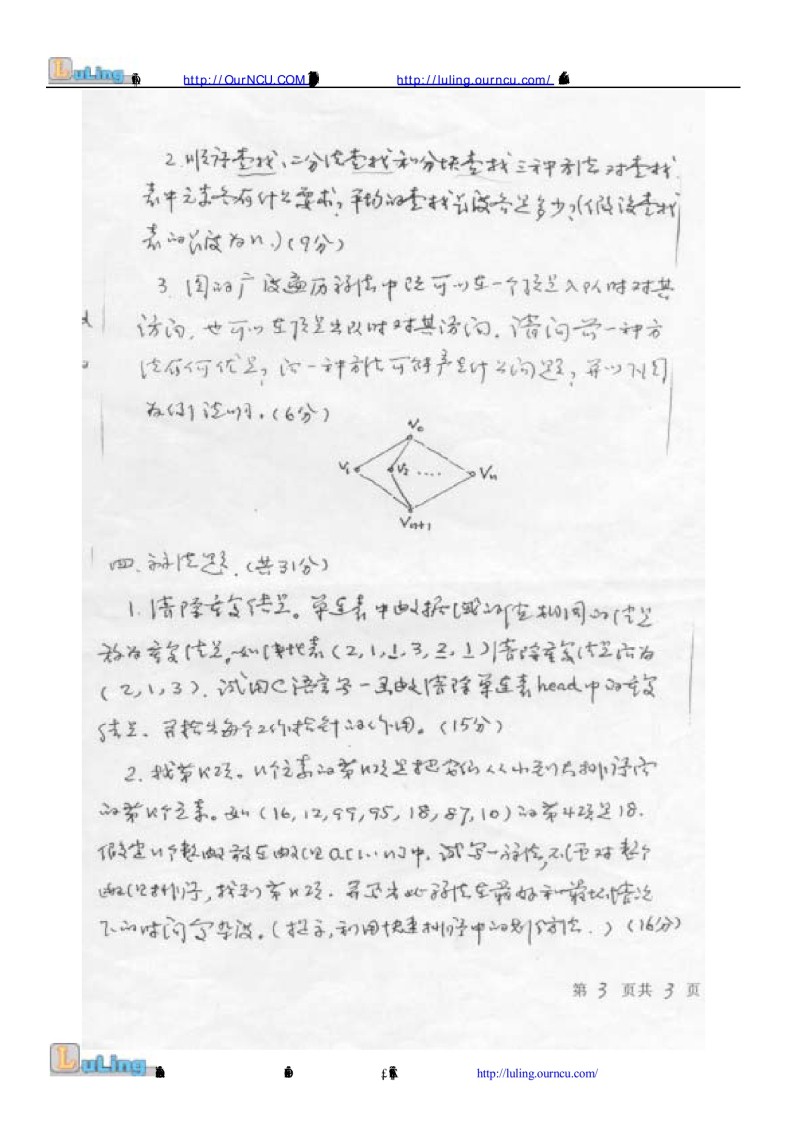 LuLing http://OurNCU.COM http://luling.ourncu.com/
2.顺序查找、二分法查找和分块查找三种方法对查找
表中元素各有什么要求？平均的查找长度各是多少？(假设查找
表的长度为n.)(9分)
3.图的广度遍历算法中既可以在一个顶点入队时对其
访问,也可以在顶点出队时对其访问.请问前一种方
法有何优点？后一种方法可能产生什么问题？并以下图
为例说明.(6分)
V₀
V₁ V₂ .... Vn
Vn+1
四.算法题.(共31分)
1.清除重复结点。单链表中数据域的值相同的结点
称为重复结点。如线性表(2,1,1,3,2,1)清除重复结点后为
(2,1,3).试用C语言写一函数清除单链表head中的重复
结点.并指出每个工作指针的作用。(15分)
2.找第K项。n个元素的第K项是把它们从小到大排序后
的第K个元素。如(16,12,99,95,18,87,10)的第4项是18.
假定n个整数放在数组a[1..n]中.试写一算法,不使对整个
数组排序,找到第K项.并写出此算法在最好和最坏情况
下的时间复杂度。(提示,利用快速排序中的划分方法.)(16分)
第 3 页共 3 页
LuLing http://luling.ourncu.com/